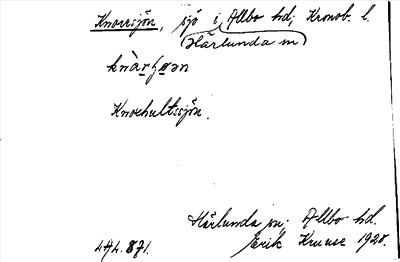 Knorrsjön, sjö i Allbo hd; Kronob. l.
(Härlunda sn)
knàrʃøən
Knoehultssjön.
Härlunda sn; Allbo hd.
Erik Kruuse 1920.